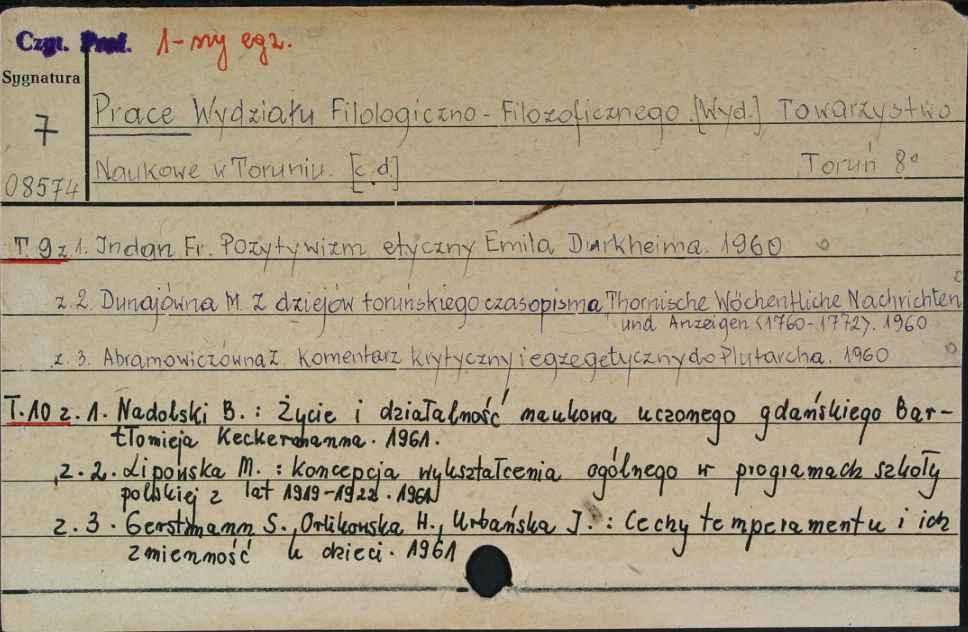 Czyt. Prof. 1-szy egz.
Sygnatura
7
08574
Prace Wydziału Filologiczno-Filozoficznego. [Wyd.] Towarzystwo
Naukowe w Toruniu. [c.d.] Toruń 8°
T. 9 z 1. Indan Fr. Pozytywizm etyczny Emila Durkheima. 1960
z. 2. Dunajówna M. Z dziejów toruńskiego czasopisma Thornische Wöchentliche Nachrichten
und Anzeigen <1760-1772>. 1960
z. 3. Abramowiczówna Z. Komentarz krytyczny i egzegetyczny do Plutarcha. 1960
T. 10 z. 1. Nadolski B. : Życie i działalność naukowa uczonego gdańskiego Bar-
tłomieja Keckermanna. 1961.
z. 2. Lipońska M. : Koncepcja wykształcenia ogólnego w programach szkoły
polskiej z lat 1919-1922. 1961
z. 3. Gerstmann S., Orlikowska H., Urbańska J. : Cechy temperamentu i ich
zmienność u dzieci. 1961